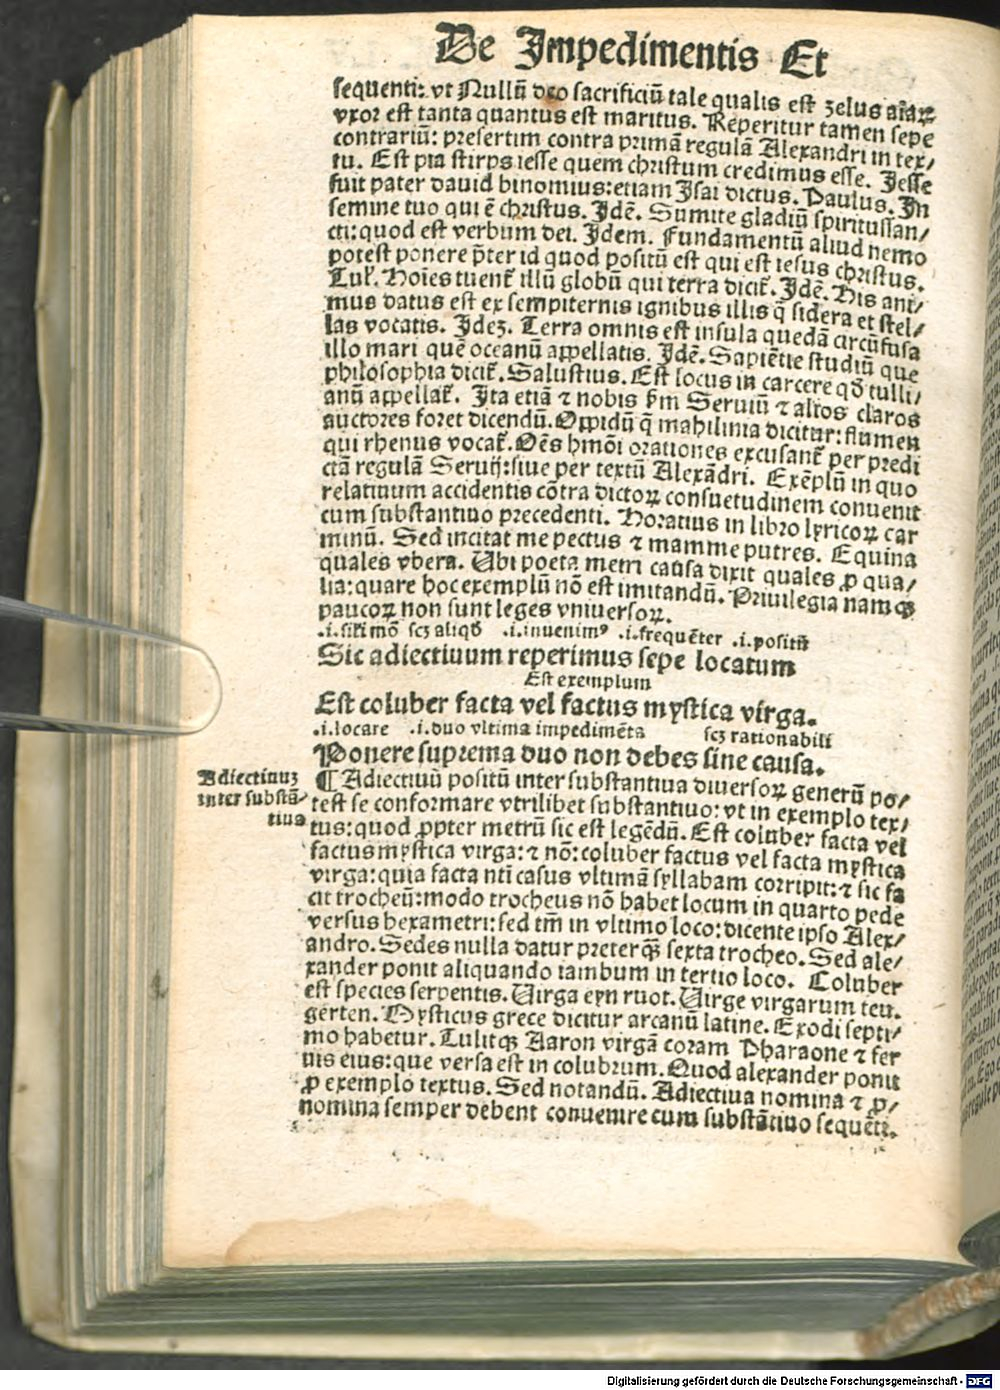 De Impedimentis Et
sequenti: vt Nullū deo sacrificiū tale qualis est zelus aīaꝝ
vxor est tanta quantus est maritus. Reperitur tamen sepe
contrariū: presertim contra primā regulā Alexandri in tex/
tu. Est pia stirps iesse quem christum credimus esse. Jesse
fuit pater dauid binomius: etiam Jsai dictus. Paulus. Jn
semine tuo qui ē christus. Jdē. Sumite gladiū spiritussan/
cti: quod est verbum dei. Jdem. Fundamentū aliud nemo
potest ponere p̄ter id quod positū est qui est iesus christus.
Tul̛. Hoīes tuent̛ illū globū qui terra dicit̛. Jdē. His ani/
mus datus est ex sempiternis ignibus illis q̄ sidera et stel/
las vocatis. Jdeꝫ. Terra omnis est insula quedā circūfusa
illo mari quē oceanū appellatis. Jdē. Sapiētie studiū que
philosophia dicit̛. Salustius. Est locus in carcere qď tulli/
anū appellat̛. Jta etiā ⁊ nobis ẜm Seruiū ⁊ alios claros
auctores foret dicendū. Oppidū q̄ mahilinia dicitur: flumen
qui rhenus vocat̛. Oēs hmōi orationes excusant̛ per predi
ctā regulā Seruij: siue per textū Alexādri. Exēplū in quo
relatiuum accidentis cōtra dictoꝝ consuetudinem conuenit
cum substantiuo precedenti. Horatius in libro lyricoꝝ car
minū. Sed incitat me pectus ⁊ mamme putres. Equina
quales vbera. Ubi poeta metri causa dixit quales ꝓ qua/
lia: quare hoc exemplū nō est imitandū. Priuilegia namqꝫ
paucoꝝ non sunt leges vniuersoꝝ.
.i. sil̛i mō scꝫ aliqď .i. inuenimꝰ .i. frequēter .i. positū
Sic adiectiuum reperimus sepe locatum
Est exemplum
Est coluber facta vel factus mystica virga.
.i. locare .i. duo vltima impedimēta scꝫ rationabili
Ponere suprema duo non debes sine causa.
Adiectiuuꝫ
inter substā/
tiua
¶ Adiectiuū positū inter substantiua diuersoꝝ generū po/
test se conformare vtrilibet substantiuo: vt in exemplo tex/
tus: quod ꝓpter metrū sic est legēdū. Est coluber facta vel
factus mystica virga: ⁊ nō: coluber factus vel facta mystica
virga: quia facta nti casus vltimā syllabam corripit: ⁊ sic fa
cit trocheū: modo trocheus nō habet locum in quarto pede
versus hexametri: sed tm̄ in vltimo loco: dicente ipso Alex/
andro. Sedes nulla datur preterqꝫ̄ sexta trocheo. Sed ale/
xander ponit aliquando iambum in tertio loco. Coluber
est species serpentis. Uirga eyn ruot. Uirge virgarum teu.
gerten. Mysticus grece dicitur arcanū latine. Exodi septi/
mo habetur. Tulitqꝫ Aaron virgā coram Pharaone ⁊ ser
uis eius: que versa est in colubrum. Quod alexander ponit
ꝓ exemplo textus. Sed notandū. Adiectiua nomina ⁊ ꝓ/
nomina semper debent conuenire cum substātiuo sequēti.
Digitalisierung gefördert durch die Deutsche Forschungsgemeinschaft - DFG